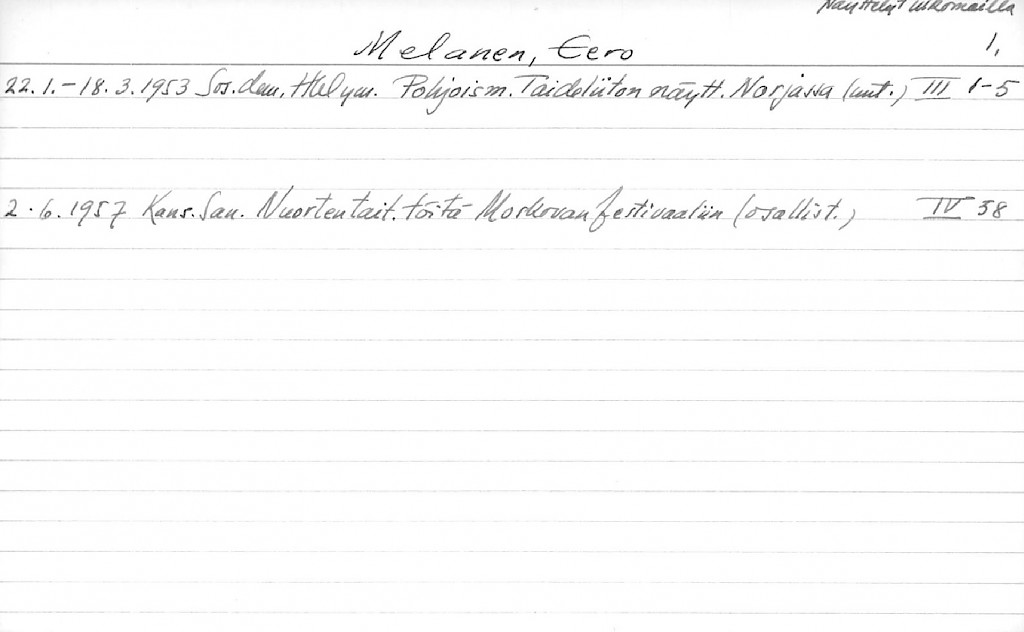 Näyttelyt ulkomailla
1.
Melanen, Eero
22.1.-18.3.1953 Sos.dem, Hbl ym. Pohjoism. Taideliiton näytt. Norjassa (mt.) III 1-5
2.6.1957 Kans.San. Nuorten tait. töitä Moskovan festivaaliin (osallist.) IV 38